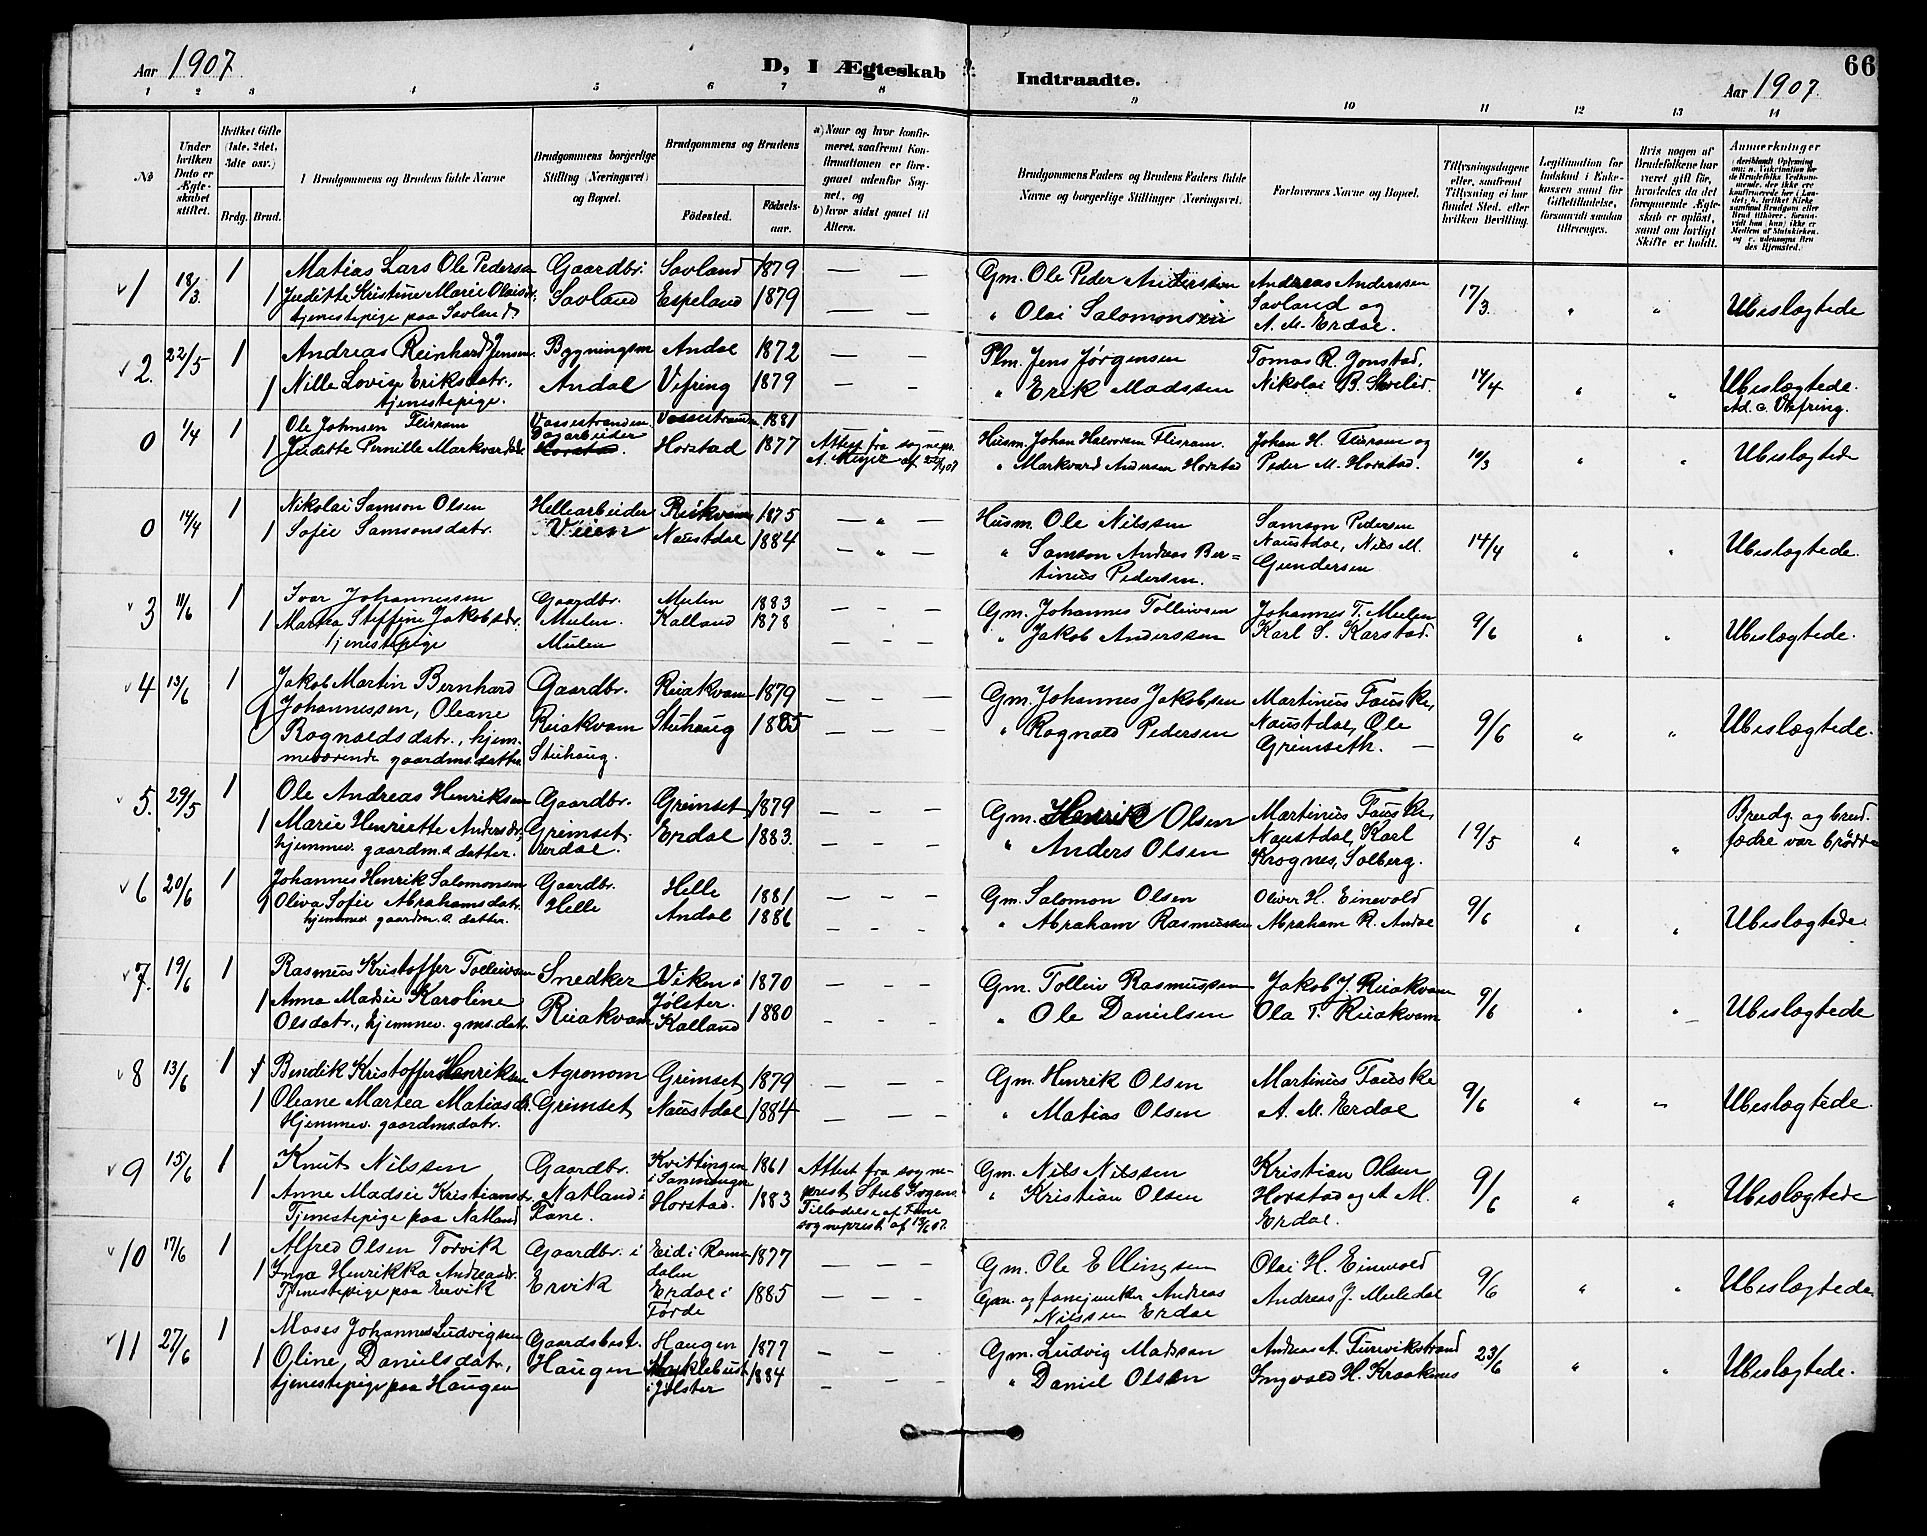 Aar 1907
D, I Ægteskab Indtraadte.
66
Aar 1907.
1 2 3 4 5 6 7 8 9 10 11 12 13 14
No
Under hvilken Dato er Ægteskabet stiftet.
Hvilket Gifte (1ste, 2det, 3dte osv.)
Brdg. Brud.
Brudgommens og Brudens fulde Navne
Brudgommens borgerlige Stilling (Næringsvei) og Bopæl.
Brudgommens og Brudens
Födested.
Födselsaar.
a) Naar og hvor konfirmeret, saafremt Konfirmationen er foregaaet udenfor Sognet, og
b) hvor sidst gaaet til Alters.
Brudgommens Faders og Brudens Faders fulde Navne og borgerlige Stillinger (Næringsvei).
Forlovernes Navne og Bopæl.
Tillysningsdagene eller, saafremt Tillysning ei har fundet Sted, efter hvilken Bevilling.
Legitimation for Indskud i Enkekassen samt for Giftetilladelse, forsaavidt saadan tiltrænges.
Hvis nogen af Brudefolkene har været gift för, hvorledes da det foregaaende Ægteskab er oplöst, samt om lovligt Skifte er holdt.
Anmærkninger
1 18/3 1 Matias Lars Ole Pedersen Gaardbr. Savland 1879 — — Gm. Ole Peder Anderssen Andreas Anderssen 17/3 " " Ubeslægtede
1 Juditte Kristine Marie Olaisdr. Savland Espeland 1879 — — " Olai Salomonsen Savland og
tjenestepige paa Savland A. M. Erdal.
2. 22/5 1 Andreas Reinhard Jensen Bygningsm Andal 1872 — — Plm. Jens Jørgensen Tomas R. Gonstad. 14/4 " " Ubeslægtede.
1 Nille Lovise Eriksdatr., Andal Vefring 1879 — — " Erik Madssen Nikolai B. Ad. c. Vefring.
tjenestepige.
0 1/4 1 Ole Johnsen Flisram Vossestranden Vossestranden 1881 Husm. Johan Halvorsen Flisram. Johan H. Flisram og 10/3 " " Ubeslægtede
1 Juditte Pernille Markvardsdr. Dagarbeider Horstad. Horstad 1877 Attest fra sognepr. A. Meyer af " Markvard Andersen Horstad Peder M. Horstad.
0 14/4 1 Nikolai Samson Olsen Hellearbeider Reiakvam 1875 — " — Husm. Ole Nilssen Samson Pedersen 14/4 " " Ubeslægtede.
1 Sofie Samsonsdatr. Veien Naustdal 1884 — " — " Samson Andreas Ber= Naustdal, Nils M.
tinius Pedersen. Gundersen
3 11/6 1 Ivar Johannessen Gaardbr. Mulen 1883 — — — Gm. Johannes Tolleivsen Johannes T. Mulen 9/6 " " Ubeslægtede.
1 Martea Steffine Jakobsdr. Mulen. Kalland 1878 — — — " Jakob Anderssen Karl S. Karstad.
tjenestepige Mulen
4 13/6 1 Jakob Martin Bernhard Gaardbr. Reiakvam 1879 — — — Gm. Johannes Jakobsen Martinus Fauske, 9/6 " " Ubeslægtede.
1 Johannessen, Oleane Reiakvam Stuhaug 1885 — — — " Rognald Pedersen Naustdal, Ole
Rognaldsdatr., hjem- Stuhaug. Grimseth. —
meværende gaardmsdatter.
5. 29/5 1 Ole Andreas Henriksen Gaardbr. Grimset 1879 — — — Gm. Henrik Olsen Martinus Fauske, 19/5 " " Brudg. og brud.
1 Marie Henriette Andersdr., Grimset. Erdal 1883. — — — " Anders Olsen Naustdal, Karl fædre var brødre
hjemmev. gaardm.s datter. Erdal. Krognes, Solberg.
6 20/6 1 Johannes Henrik Salomonsen Gaardbr. Helle 1881 — — — Gm. Salomon Olsen Oliver H. Einevold 9/6 " " Ubeslægtede
1 Oliva Sofie Abrahamsdatr. Helle Andal 1886 — — — " Abraham Rasmussen Abraham R. Andal
hjemmev. gaardm.s datter.
7. 19/6 1 Rasmus Kristoffer Tolleivsen Snedker Viken i Jølster. 1870 — — — Gm. Tolleiv Rasmussen Jakob J. Reiakvam 9/6 " " Ubeslægtede
1 Anna Madsie Karoline Reiakvam Kalland 1880 — — — " Ole Danielsen Ola T. Reiakvam
Olsdatr., hjemmev. gms. datr.
8 13/6 1 Bendik Kristoffer Henriksen Agronom Grimset 1879 — — — Gm. Henrik Olsen Martinus Fauske 9/6 " " Ubeslægtede.
1 Oleane Martea Matiasdr. Grimset Naustdal 1884 — — — " Matias Olsen A. M. Erdal
Hjemmev. gaardmsdatr.
9 15/6 1 Knut Nilssen Gaardbr. Kvittingen i Sammanger 1861 Attest fra sogne- Gm. Nils Nilssen Kristian Olsen 9/6 " " Ubeslægtede
1 Anne Madsie Kristiansdr. Natland i Horstad. 1883 prest Stub Krogen. " Kristian Olsen Horstad og A. M.
Tjenestepige paa Natland Fane. Tilladelse af Fane Erdal.
sogneprest af 13/6 07.
10 17/6 1 Alfred Olsen Torvik Gaardbr. i Eid i Romsdalen 1877 — — — Gm. Ole Ellingsen Olai H. Einevold 9/6 " " Ubeslægtede
1 Inga Henrikka Andreasdr. Ervik Erdal i Førde 1885 — — — Gm. og fanejunker Andreas Andreas J. Muledal
Tjenestepige paa Ervik Nilssen Erdal
11 27/6 1 Moses Johannes Ludvigsen Gaardsbest. Haugen 1877 — — Gm. Ludvig Madsen Andreas A. Furevikstrand 23/6 " " Ubeslægtede.
1 Oline, Danielsdatr., Haugen Myklebust i Jølster 1884 — — — " Daniel Olsen Ingvald H. Kraaknes
tjenestepige paa Haugen